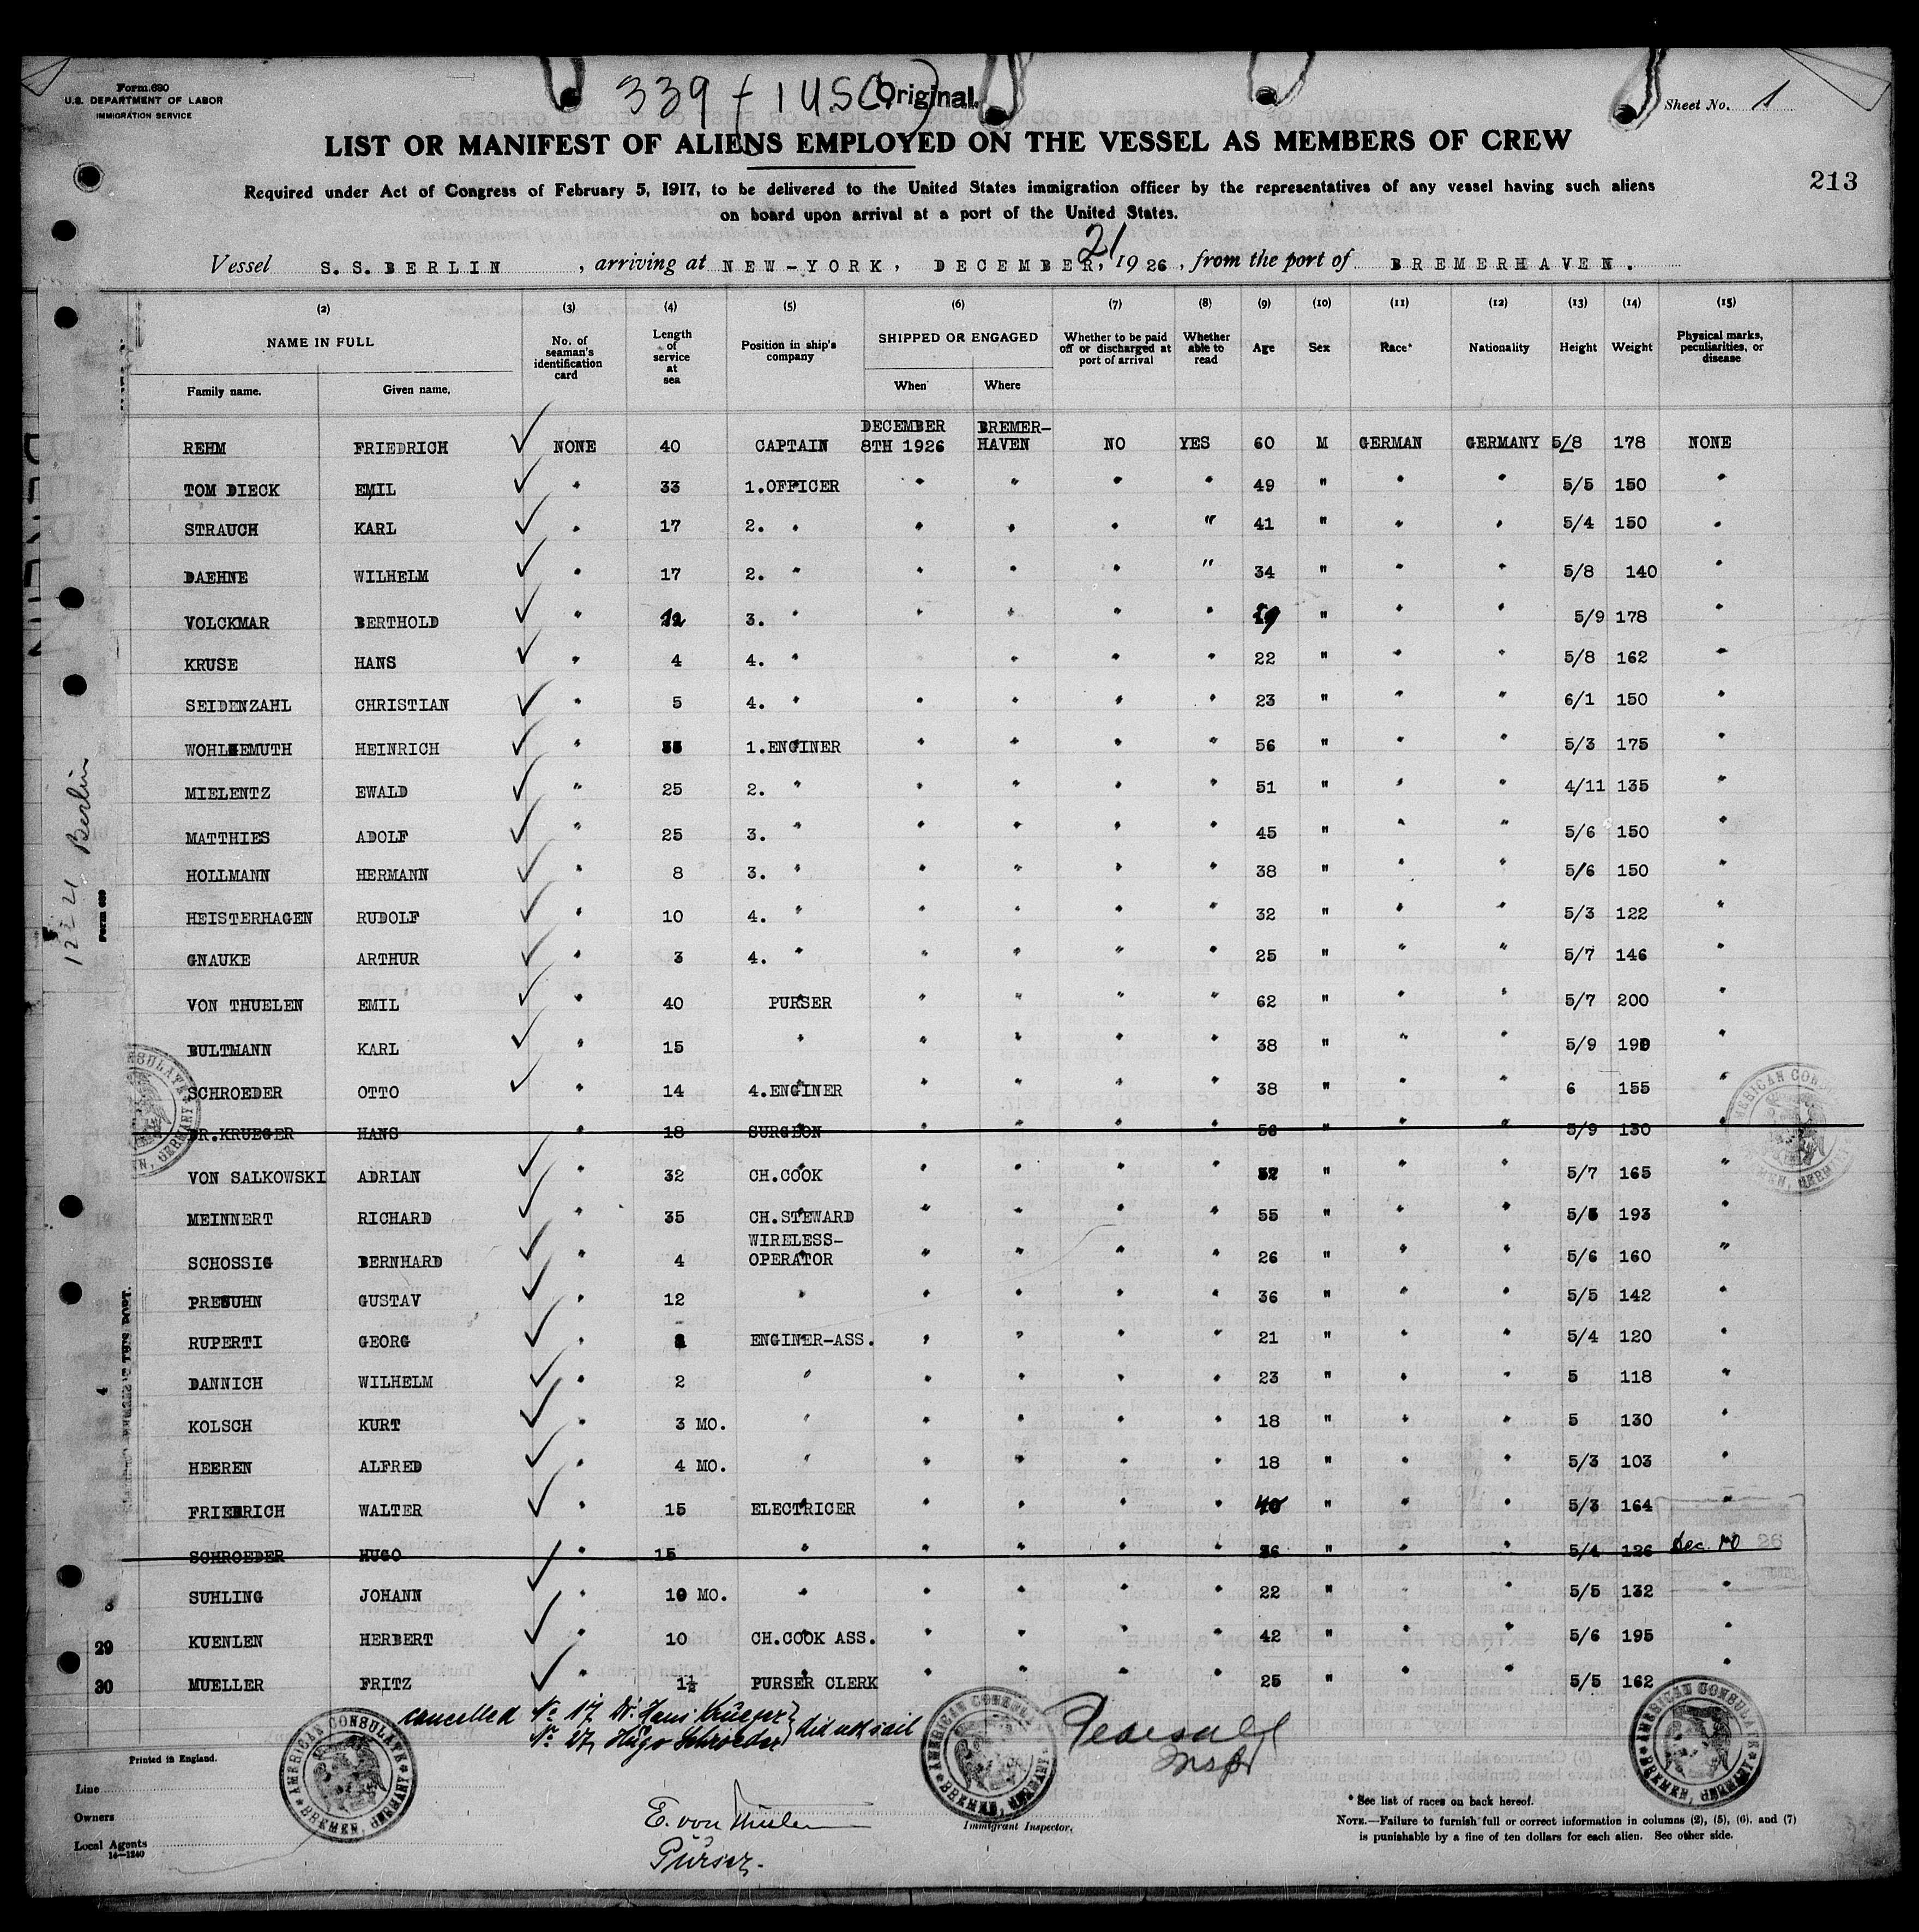 Form 680
U.S. DEPARTMENT OF LABOR
IMMIGRATION SERVICE
339 + 1 USC)
Original.
Sheet No. 1
LIST OR MANIFEST OF ALIENS EMPLOYED ON THE VESSEL AS MEMBERS OF CREW
213
Required under Act of Congress of February 5, 1917, to be delivered to the United States immigration officer by the representatives of any vessel having such aliens
on board upon arrival at a port of the United States.
Vessel S. S. BERLIN , arriving at NEW-YORK, DECEMBER, 21 1926, from the port of BREMERHAVEN.
(2) (3) (4) (5) (6) (7) (8) (9) (10) (11) (12) (13) (14) (15)
NAME IN FULL No. of seaman's identification card Length of service at sea Position in ship's company SHIPPED OR ENGAGED Whether to be paid off or discharged at port of arrival Whether able to read Age Sex Race* Nationality Height Weight Physical marks, peculiarities, or disease
Family name. Given name. When Where
REHM FRIEDRICH ✓ NONE 40 CAPTAIN DECEMBER 8TH 1926 BREMER-HAVEN NO YES 60 M GERMAN GERMANY 5/8 178 NONE
TOM DIECK EMIL ✓ " 33 1.OFFICER " " " " 49 " " " 5/5 150 "
STRAUCH KARL ✓ " 17 2. " " " " " 41 " " " 5/4 150 "
DAEHNE WILHELM ✓ " 17 2. " " " " " 34 " " " 5/8 140 "
VOLCKMAR BERTHOLD ✓ " 3. " " " " " " " " 5/9 178 "
KRUSE HANS ✓ " 4 4. " " " " " 22 " " " 5/8 162 "
SEIDENZAHL CHRISTIAN ✓ " 5 4. " " " " " 23 " " " 6/1 150 "
WOHLGEMUTH HEINRICH ✓ " 1.ENGINER " " " " 56 " " " 5/3 175 "
MIELENTZ EWALD ✓ " 25 2. " " " " " 51 " " " 4/11 135 "
MATTHIES ADOLF ✓ " 25 3. " " " " " 45 " " " 5/6 150 "
HOLLMANN HERMANN ✓ " 8 3. " " " " " 38 " " " 5/6 150 "
HEISTERHAGEN RUDOLF ✓ " 10 4. " " " " " 32 " " " 5/3 122 "
GNAUKE ARTHUR ✓ " 3 4. " " " " " 25 " " " 5/7 146 "
VON THUELEN EMIL ✓ " 40 PURSER " " " " 62 " " " 5/7 200 "
BULTMANN KARL ✓ " 15 " " " " " 38 " " " 5/9 "
SCHROEDER OTTO ✓ " 14 4.ENGINER " " " " 38 " " " 6 155 "
DR.KRUEGER HANS " 18 SURGEON " " " " 56 " " " 5/9 130 "
VON SALKOWSKI ADRIAN ✓ " 32 CH.COOK " " " " " " " 5/7 165 "
MEINNERT RICHARD ✓ " 35 CH.STEWARD " " " " 55 " " " 193 "
SCHOSSIG BERNHARD ✓ " 4 WIRELESS-OPERATOR " " " " 26 " " " 5/6 160 "
PRESUHN GUSTAV ✓ " 12 " " " " " 36 " " " 5/5 142 "
RUPERTI GEORG ✓ " ENGINER-ASS. " " " " 21 " " " 5/4 120 "
DANNICH WILHELM ✓ " 2 " " " " " 23 " " " 5 118 "
KOLSCH KURT ✓ " 3 MO. " " " " " 18 " " " 5 130 "
HEEREN ALFRED ✓ " 4 MO. " " " " " 18 " " " 5/3 103 "
FRIEDRICH WALTER ✓ " 15 ELECTRICER " " " " " " " 5/3 164 "
SCHROEDER HUGO ✓ " 15 " " " " " 36 " " " 5/4 126 Dec. 10
SUHLING JOHANN ✓ " 10 MO. " " " " " 22 " " " 5/5 132 "
29 KUENLEN HERBERT ✓ " 10 CH.COOK ASS. " " " " 42 " " " 5/6 195 "
30 MUELLER FRITZ ✓ " 1½ PURSER CLERK " " " " 25 " " " 5/5 162 "
cancelled No 17, Dr. Hans Krueger
No 27, Hugo Schroeder } did not sail
Insp
AMERICAN CONSULATE
BREMEN, GERMANY
AMERICAN CONSULATE
BREMEN, GERMANY
AMERICAN CONSULATE
BREMEN, GERMANY
Printed in England.
Line
Owners
Local Agents
14—1240
E. von Thuelen
Purser.
Immigrant Inspector.
* See list of races on back hereof.
NOTE.—Failure to furnish full or correct information in columns (2), (5), (6), and (7)
is punishable by a fine of ten dollars for each alien. See other side.
12 21 Berlin
Form 680